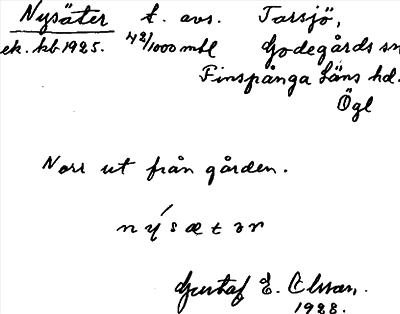 Nysäter t. avs. Tarsjö,
ek. kb 1925. 42/1000 mtl Godegårds sn
Finspånga läns hd.
Ögl
Norr ut från gården.
nýsætər
Gustaf E. Olsson.
1928.